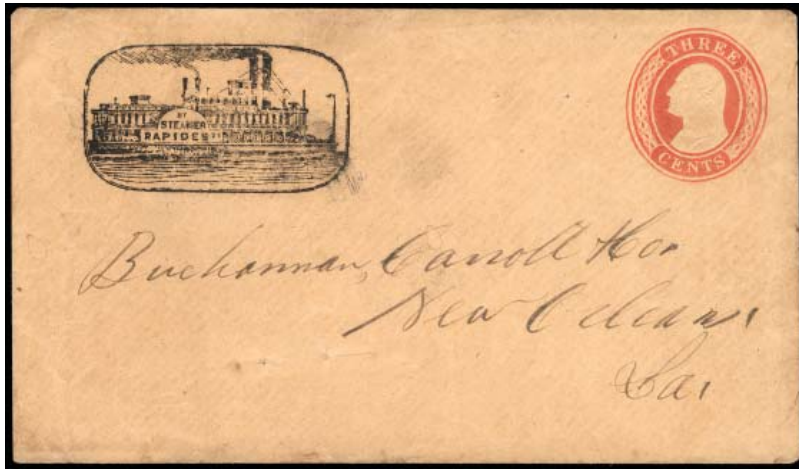 BY
STEAMER
RAPIDES
THREE
CENTS
Buchannan, Carroll & Co
New Orleans
La,